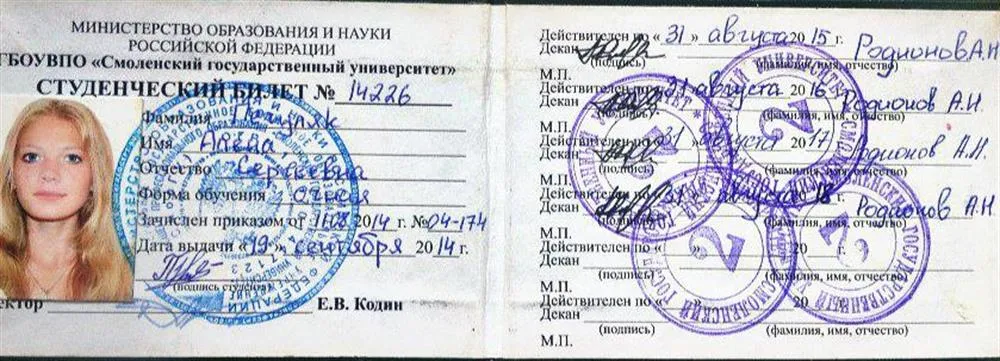 МИНИСТЕРСТВО ОБРАЗОВАНИЯ И НАУКИ
РОССИЙСКОЙ ФЕДЕРАЦИИ
ГБОУВПО «Смоленский государственный университет»
СТУДЕНЧЕСКИЙ БИЛЕТ № 14226
Фамилия
Имя
Отчество Сергеевна
Форма обучения очная
Зачислен приказом от 11.08 2014 г. № 04-174
Дата выдачи «19» сентября 2014 г.
(подпись студента)
ектор Е.В. Кодин
Действителен по «31» августа 2015 г.
Декан Родионов А.И.
(подпись) (фамилия, имя, отчество)
М.П.
Действителен по «31 августа 2016
Декан Родионов А.И.
(подпись) (фамилия, имя, отчество)
М.П.
Действителен по «31» августа 2017
Декан Родионов А.И.
(подпись) (фамилия, имя, отчество)
М.П.
Действителен по «31» августа 2018
Декан Родионов А.И.
(подпись) (фамилия, имя, отчество)
М.П.
Действителен по « » 20
Декан
(подпись) (фамилия, имя, отчество)
М.П.
Действителен по « 20
Декан
(подпись) (фамилия, имя, отчество)
М.П.